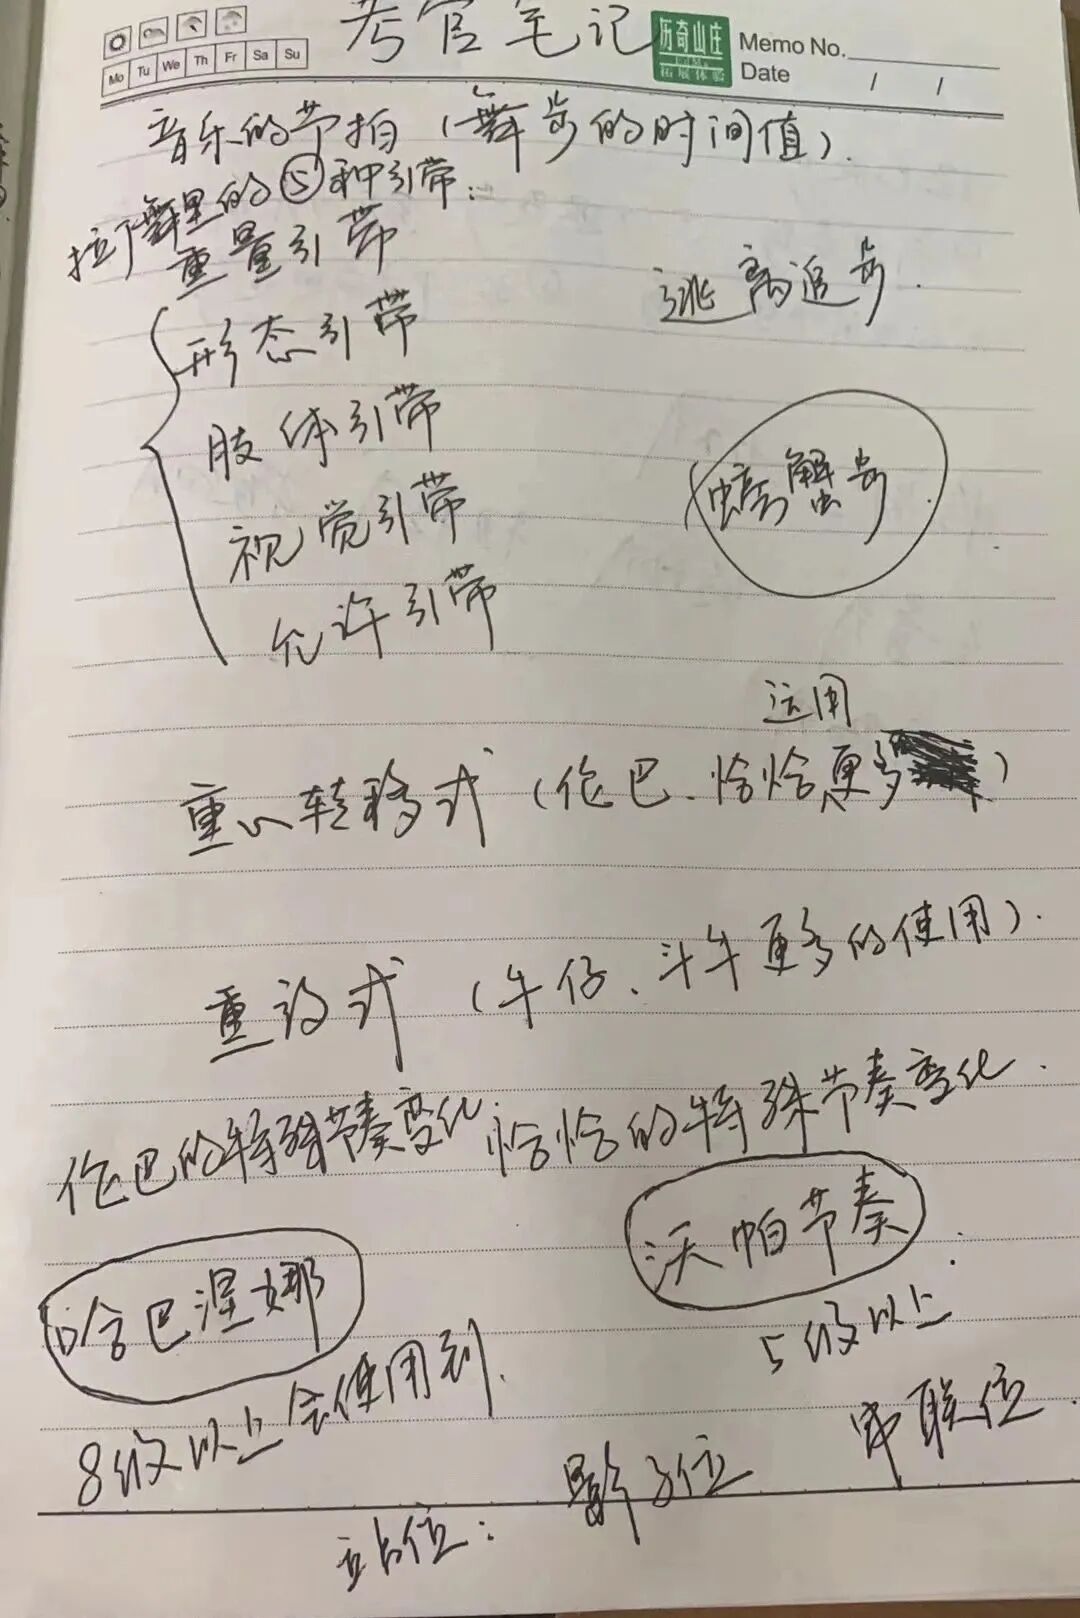 考官笔记
历奇山庄
拓展体验
Memo No.
Date / /
Mo Tu We Th Fr Sa Su
音乐的节拍(舞步的时间值).
拉丁舞里的⑤种引带:
重量引带
逃离追步.
形态引带
肢体引带
螃蟹步.
视觉引带
允许引带
运用
重心转移式(伦巴、恰恰更多)
重设式(牛仔、斗牛更多的使用).
伦巴的特殊节奏变化. 恰恰的特殊节奏变化.
哈巴涅娜
沃帕节奏.
8级以上会使用到.
5级以上
站位: 影子位 串联位.